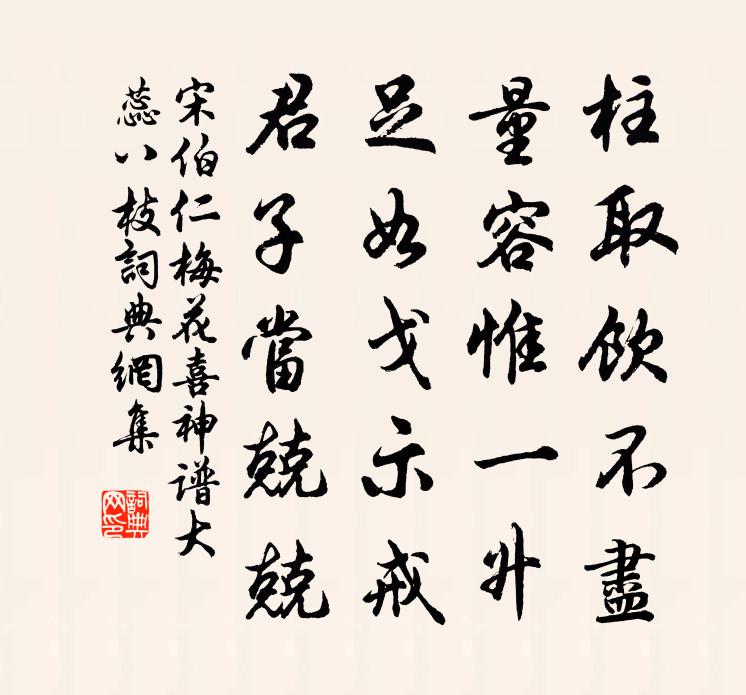 柱取飲不盡
量容惟一升
足如戈示戒
君子當兢兢
宋伯仁梅花喜神譜大
蕊八枝詞典網集
詞典
网印